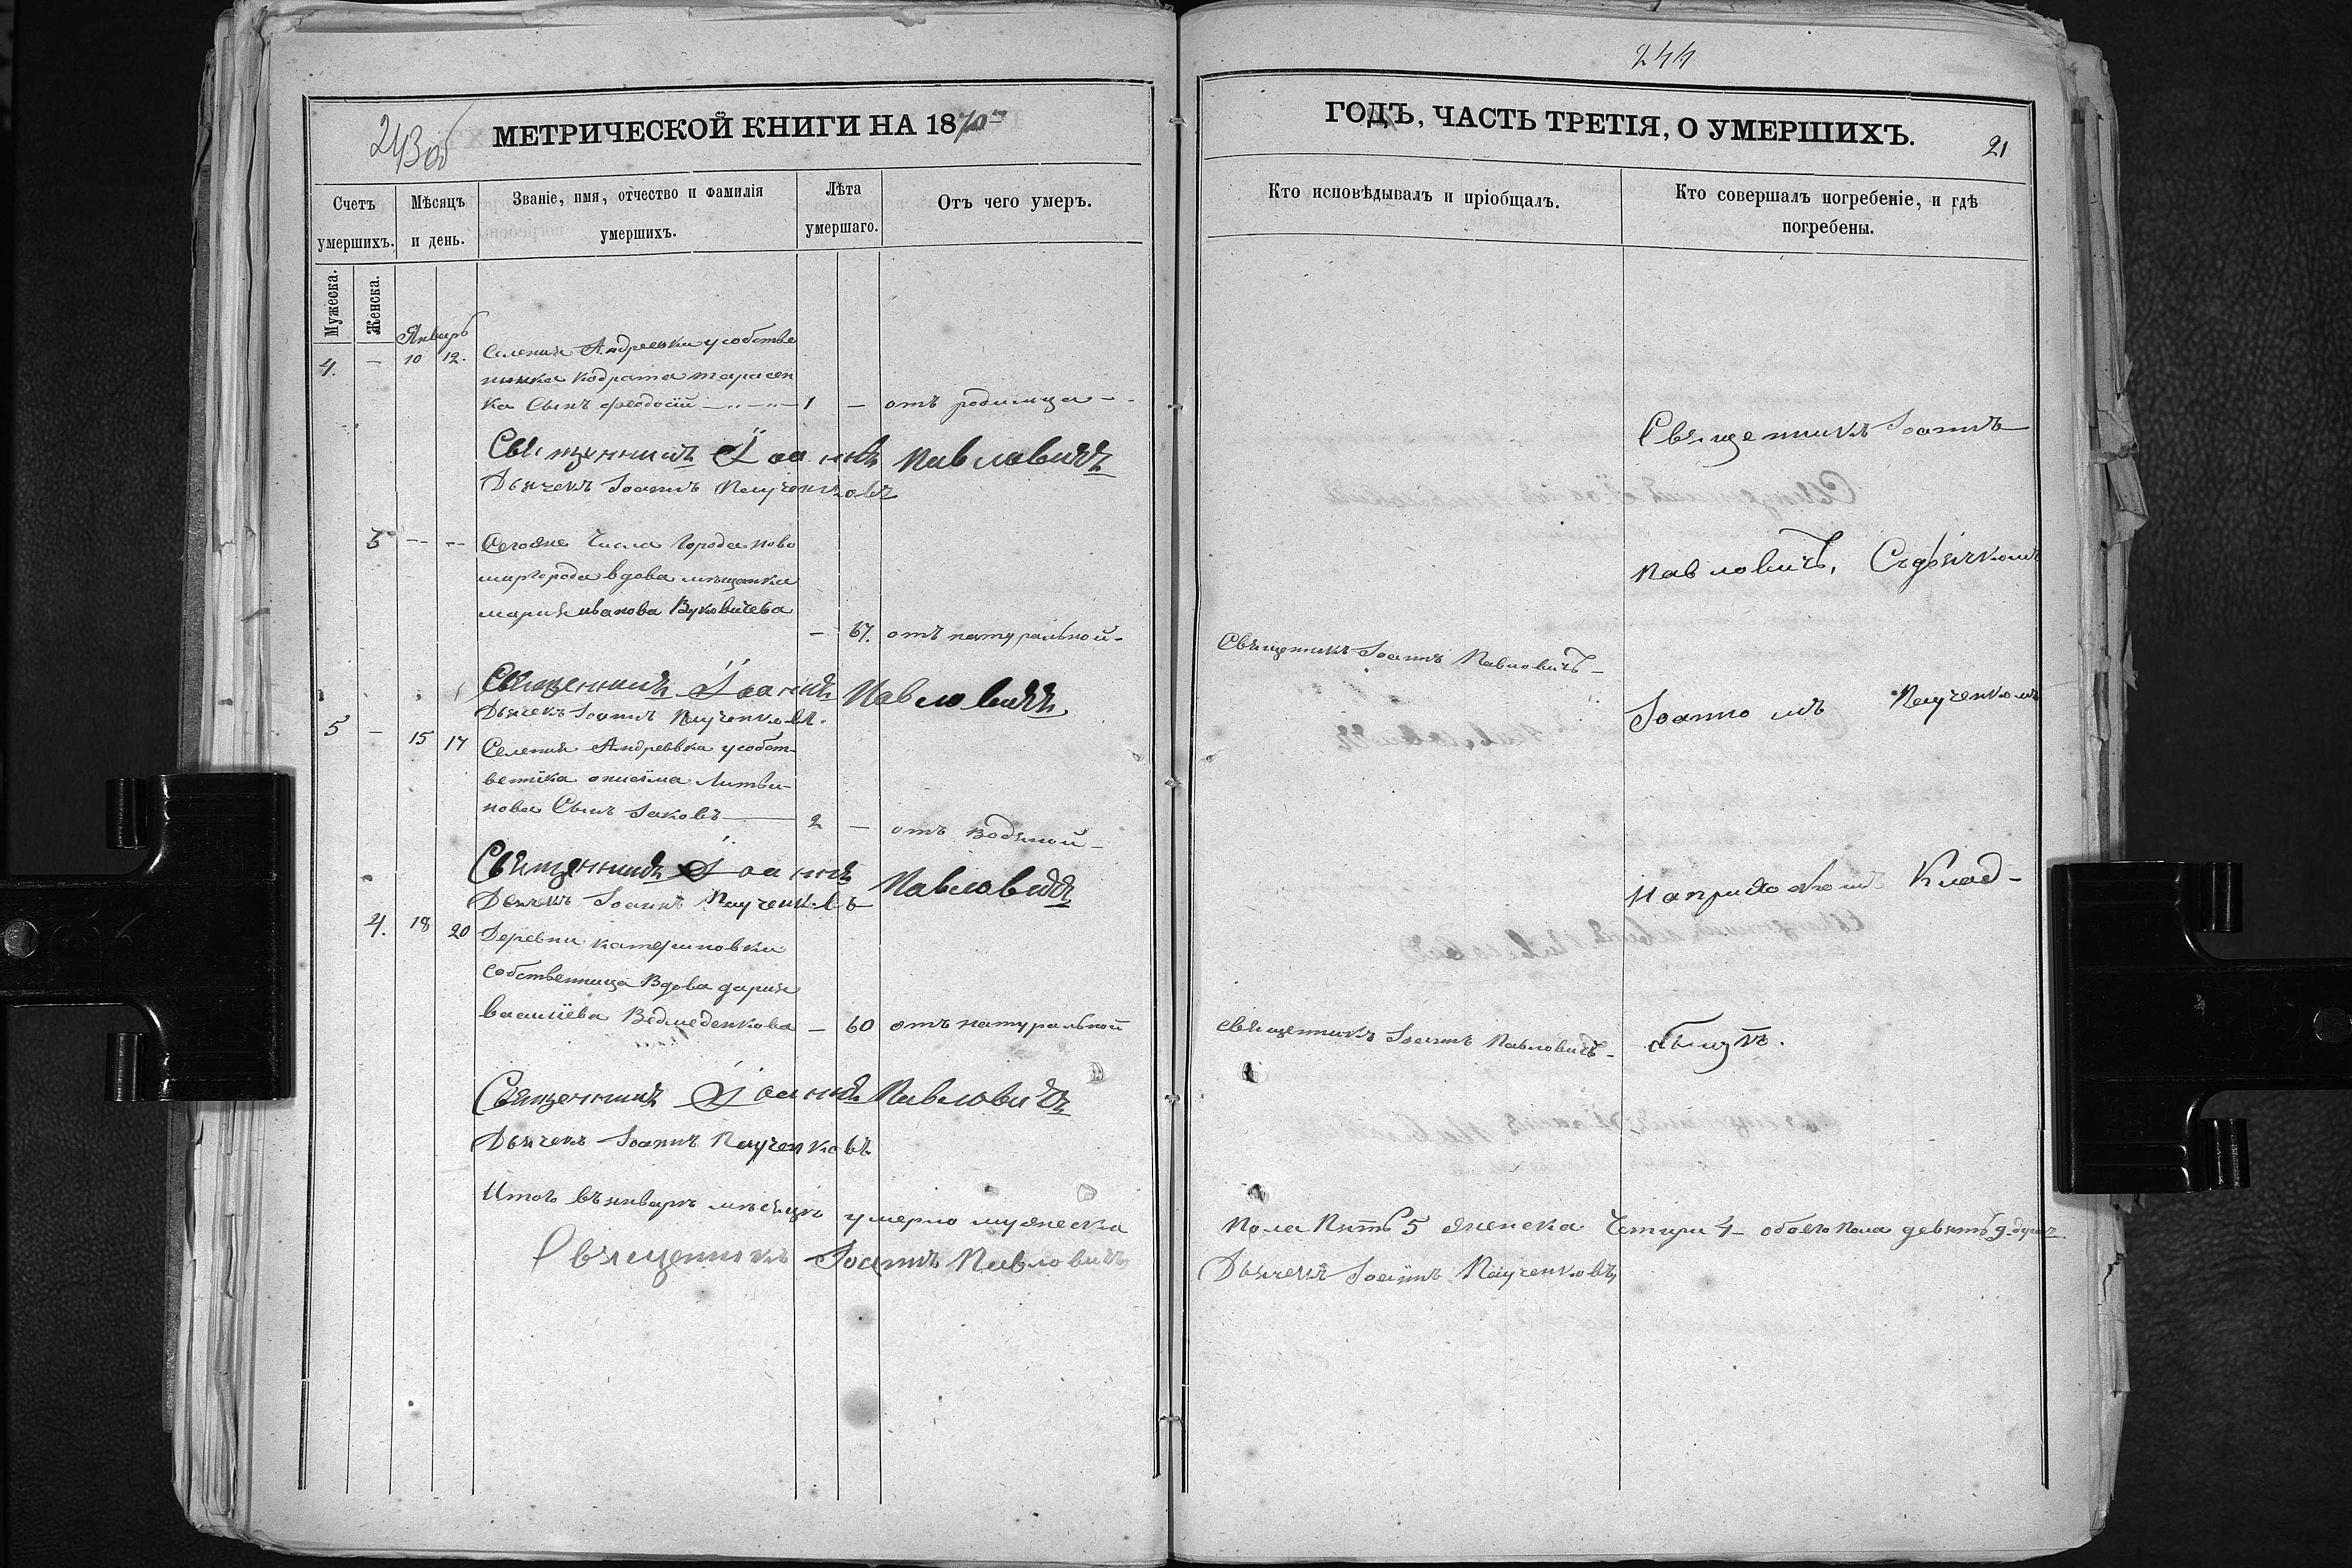 243об
МЕТРИЧЕСКОЙ КНИГИ НА 1870
Счетъ умершихъ.
Мѣсяцъ и день.
Званіе, имя, отчество и фамилія умершихъ.
Лѣта умершаго.
Отъ чего умеръ.
Мужеска.
Женска.
Январь
4. — 10 12. Селенія Андреевки у собстве
нника Кодрата Тарасен
ка Сынъ Феодосій 1 — отъ родимца
Священникъ Іоаннъ Павловичъ
Дьячекъ Іоаннъ Паученковъ
3 Сегоже числа города ново
миргорода вдова мѣщанка
марія иванова Вуковичева
— 67. отъ натуральной
Священникъ Іоаннъ Павловичъ
Дьячекъ Іоаннъ Паученковъ.
5 — 15 17 Селенія Андреевка у собст
венника онисіма Литви-
нова Сынъ Іаковъ 2 — отъ водяной
Священникъ Іоаннъ Павловичъ
Дьячекъ Іоаннъ Паученковъ
4. 18 20 Деревни катериновки
собственница Вдова дарія
василіева Ведмеденкова — 60 отъ натуральной
Священникъ Іоаннъ Павловичъ
Дьячекъ Іоаннъ Паученковъ
Итого въ январѣ мѣсяцѣ умерло мужеска
Священникъ Іоаннъ Павловичъ
244
ГОДЪ, ЧАСТЬ ТРЕТІЯ, О УМЕРШИХЪ.
21
Кто исповѣдывалъ и пріобщалъ.
Кто совершалъ погребеніе, и гдѣ погребены.
Священникъ Іоаннъ
Павловичъ, Съ дьячкомъ
Священникъ Іоаннъ Павловичъ
Іоанномъ Паученкомъ
На приходскомъ Клад-
Священникъ Іоаннъ Павловичъ
бищѣ.
пола Пять 5 женска Четири 4 обоего пола девять 9 душъ
Дьячекъ Іоаннъ Паученковъ